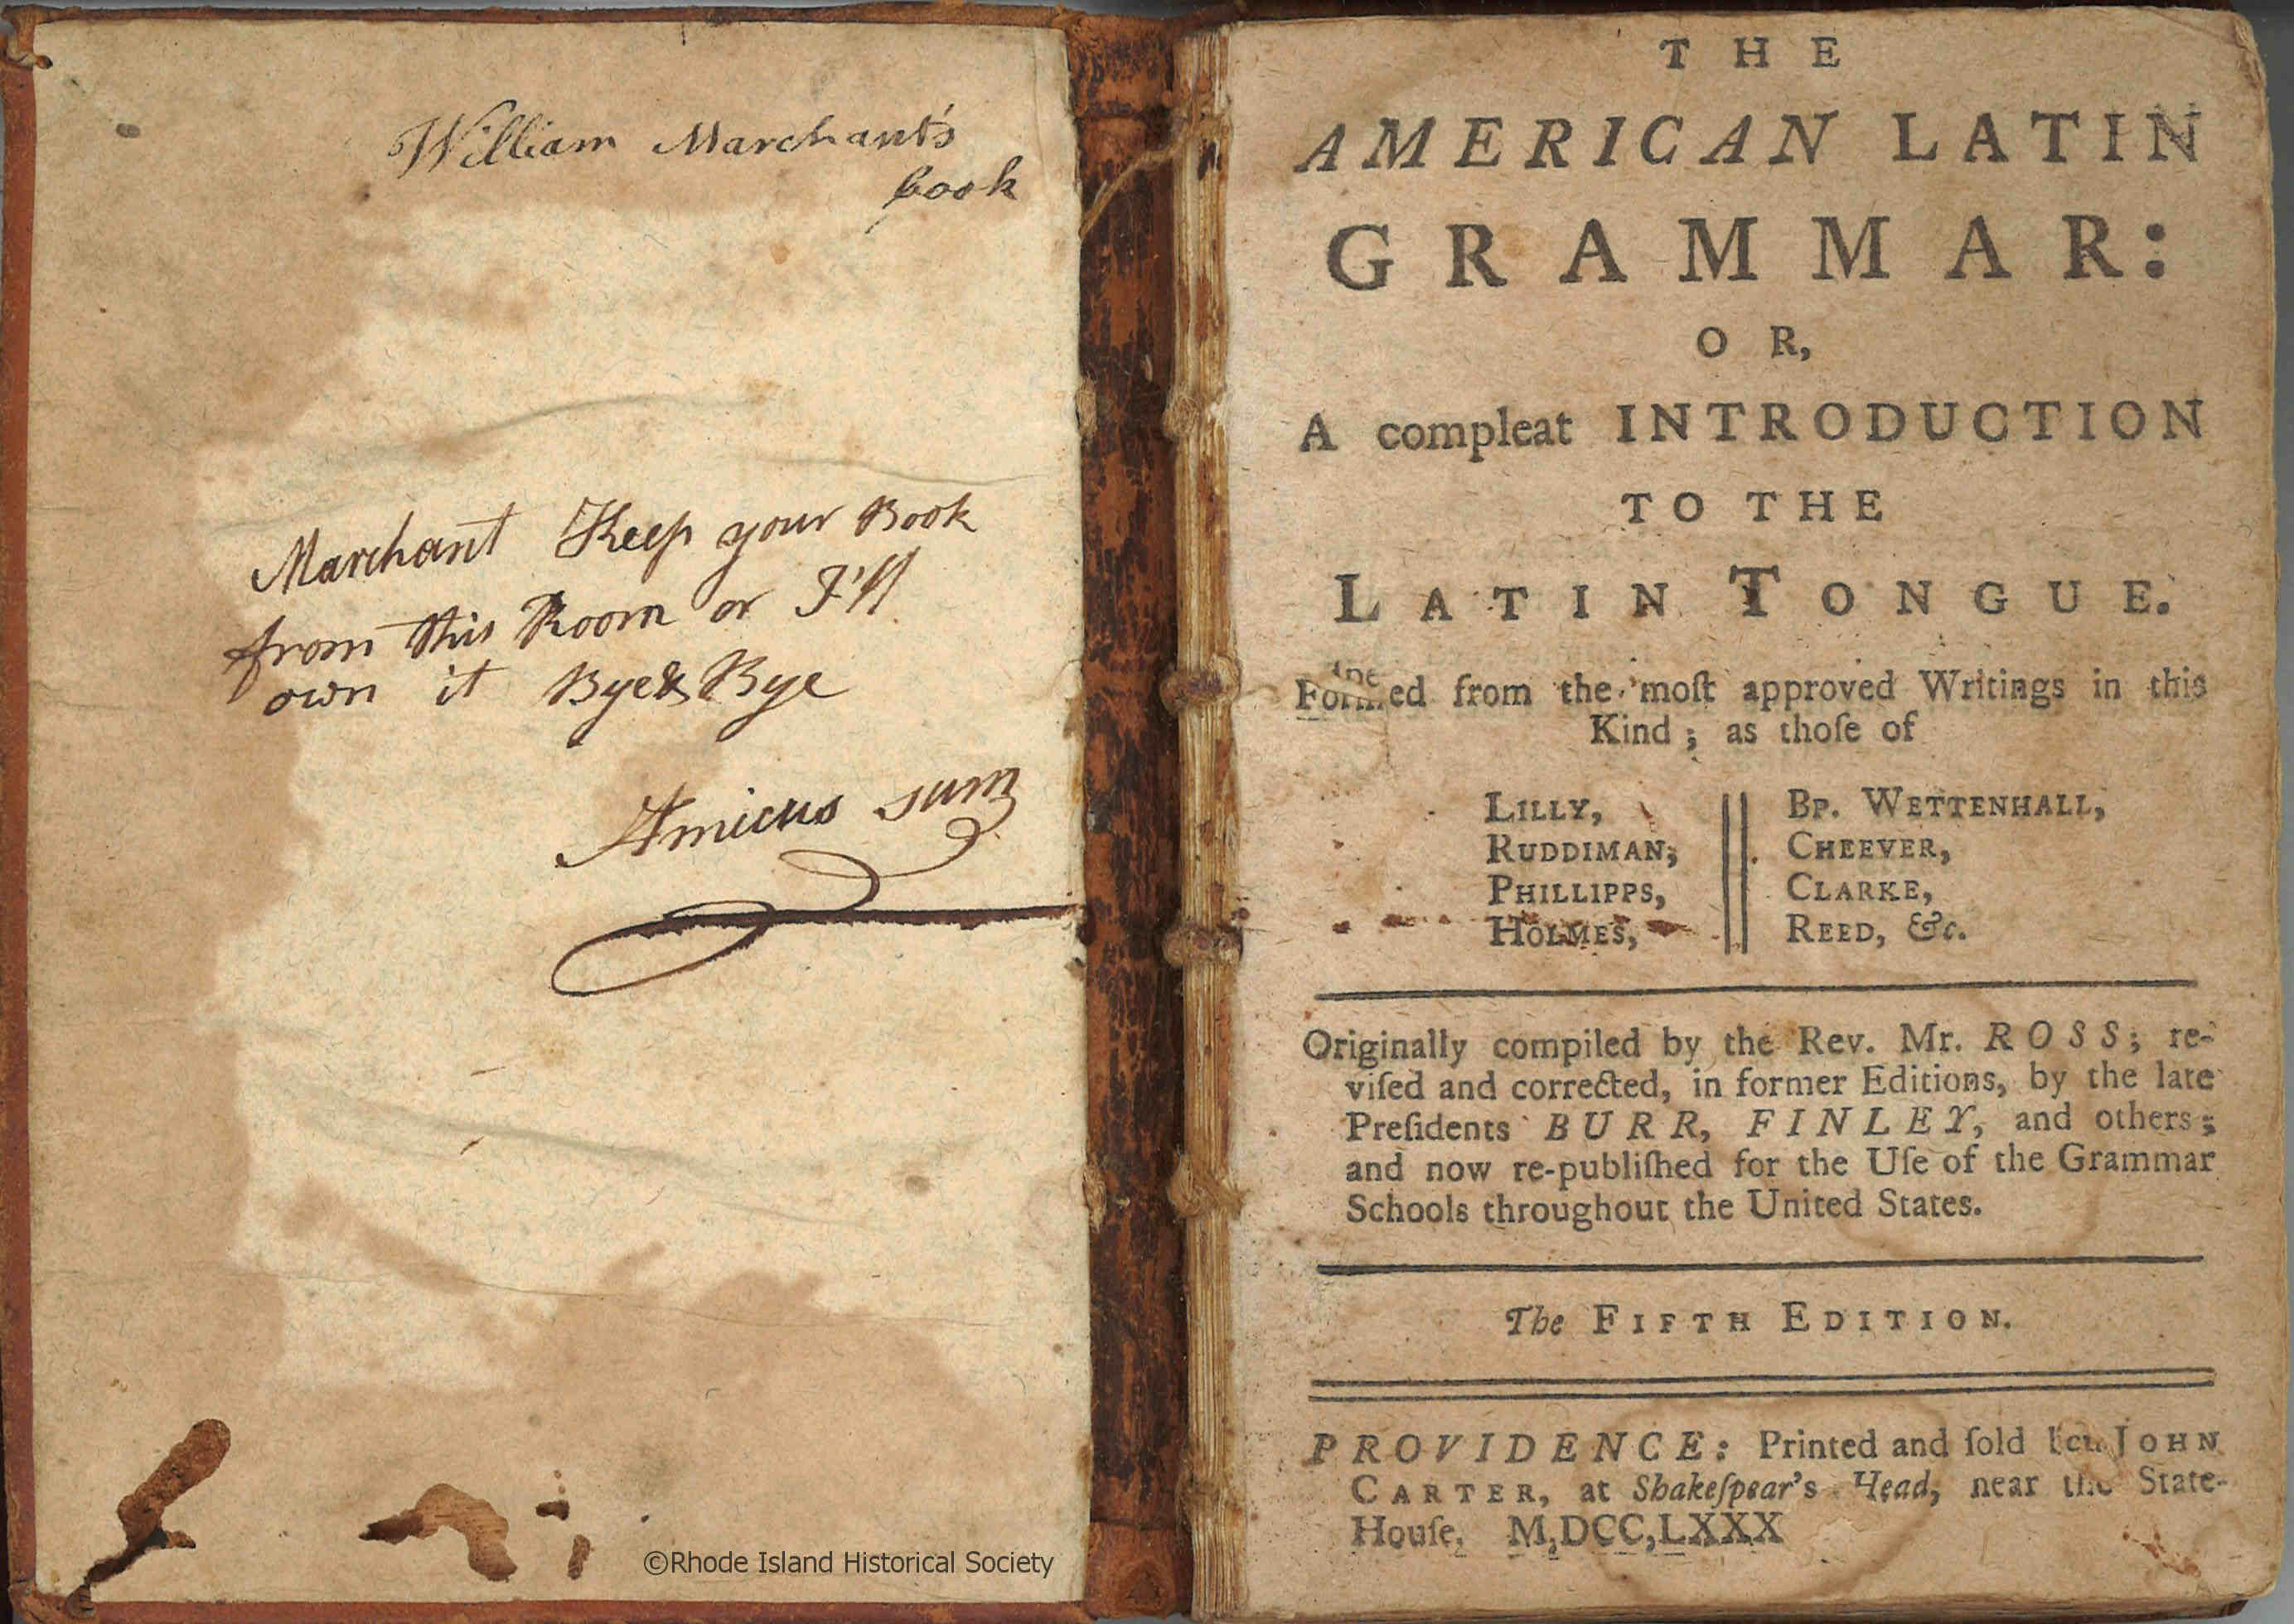 William Marchant's
book
Marchant Keep your Book
from this Room or I'll
own it Bye & Bye
Amicus sum
©Rhode Island Historical Society
THE
AMERICAN LATIN
GRAMMAR:
OR,
A compleat INTRODUCTION
TO THE
LATIN TONGUE.
Formed from the moſt approved Writings in this
Kind; as thoſe of
LILLY,
RUDDIMAN,
PHILLIPPS,
HOLMES,
BP. WETTENHALL,
CHEEVER,
CLARKE,
REED, &c.
Originally compiled by the Rev. Mr. ROSS; re-
viſed and corrected, in former Editions, by the late
Preſidents BURR, FINLEY, and others;
and now re-publiſhed for the Uſe of the Grammar
Schools throughout the United States.
The FIFTH EDITION.
PROVIDENCE: Printed and ſold JOHN
CARTER, at Shakeſpear's Head, near the State-
Houſe, M,DCC,LXXX